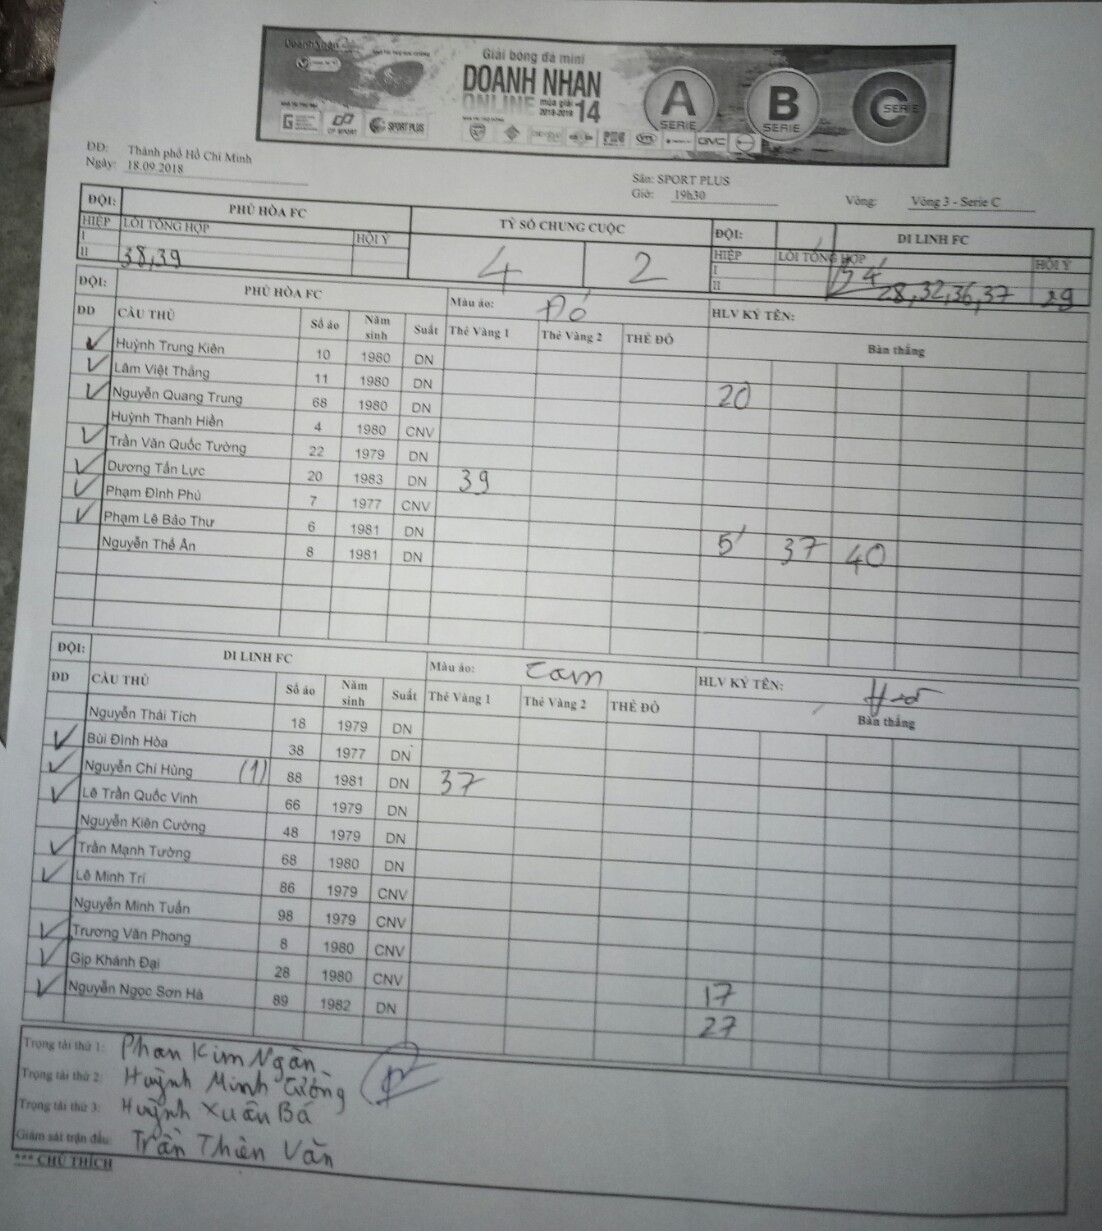 Giải bóng đá mini
DOANH NHAN
ONLINE mùa giải 2018-2019 14
A SERIE B SERIE C SERIE
CP SPORT SPORT PLUS
GVC
ĐĐ: Thành phố Hồ Chí Minh
Ngày: 18.09.2018
Sân: SPORT PLUS
Giờ: 19h30
Vòng: Vòng 3 - Serie C
ĐỘI: PHÚ HÒA FC TỶ SỐ CHUNG CUỘC ĐỘI: DI LINH FC
HIỆP LỖI TỔNG HỢP HỘI Ý HIỆP LỖI TỔNG HỢP HỘI Ý
I I
II 38,39 4 2 II 28,32,36,37 29
ĐỘI: PHÚ HÒA FC Màu áo: Đỏ HLV KÝ TÊN:
DD CẦU THỦ Số áo Năm sinh Suất Thẻ Vàng 1 Thẻ Vàng 2 THẺ ĐỎ Bàn thắng
Huỳnh Trung Kiên 10 1980 DN
Lâm Việt Thắng 11 1980 DN 20
Nguyễn Quang Trung 68 1980 DN
Huỳnh Thanh Hiền 4 1980 CNV
Trần Văn Quốc Tường 22 1979 DN
Dương Tấn Lực 20 1983 DN 39
Phạm Đình Phú 7 1977 CNV
Phạm Lê Bảo Thư 6 1981 DN 5' 37 40
Nguyễn Thế Ân 8 1981 DN
ĐỘI: DI LINH FC Màu áo: Cam HLV KÝ TÊN:
DD CẦU THỦ Số áo Năm sinh Suất Thẻ Vàng 1 Thẻ Vàng 2 THẺ ĐỎ Bàn thắng
Nguyễn Thái Tích 18 1979 DN
Bùi Đình Hòa 38 1977 DN
Nguyễn Chí Hùng (1) 88 1981 DN 37
Lê Trần Quốc Vinh 66 1979 DN
Nguyễn Kiên Cường 48 1979 DN
Trần Mạnh Tường 68 1980 DN
Lê Minh Trí 86 1979 CNV
Nguyễn Minh Tuấn 98 1979 CNV
Trương Văn Phong 8 1980 CNV
Gịp Khánh Đại 28 1980 CNV 17
Nguyễn Ngọc Sơn Hà 89 1982 DN 27
Trọng tài thứ 1: Phan Kim Ngân
Trọng tài thứ 2: Huỳnh Minh Cường
Trọng tài thứ 3: Huỳnh Xuân Bá
Giám sát trận đấu: Trần Thiên Vân
*** CHÚ THÍCH